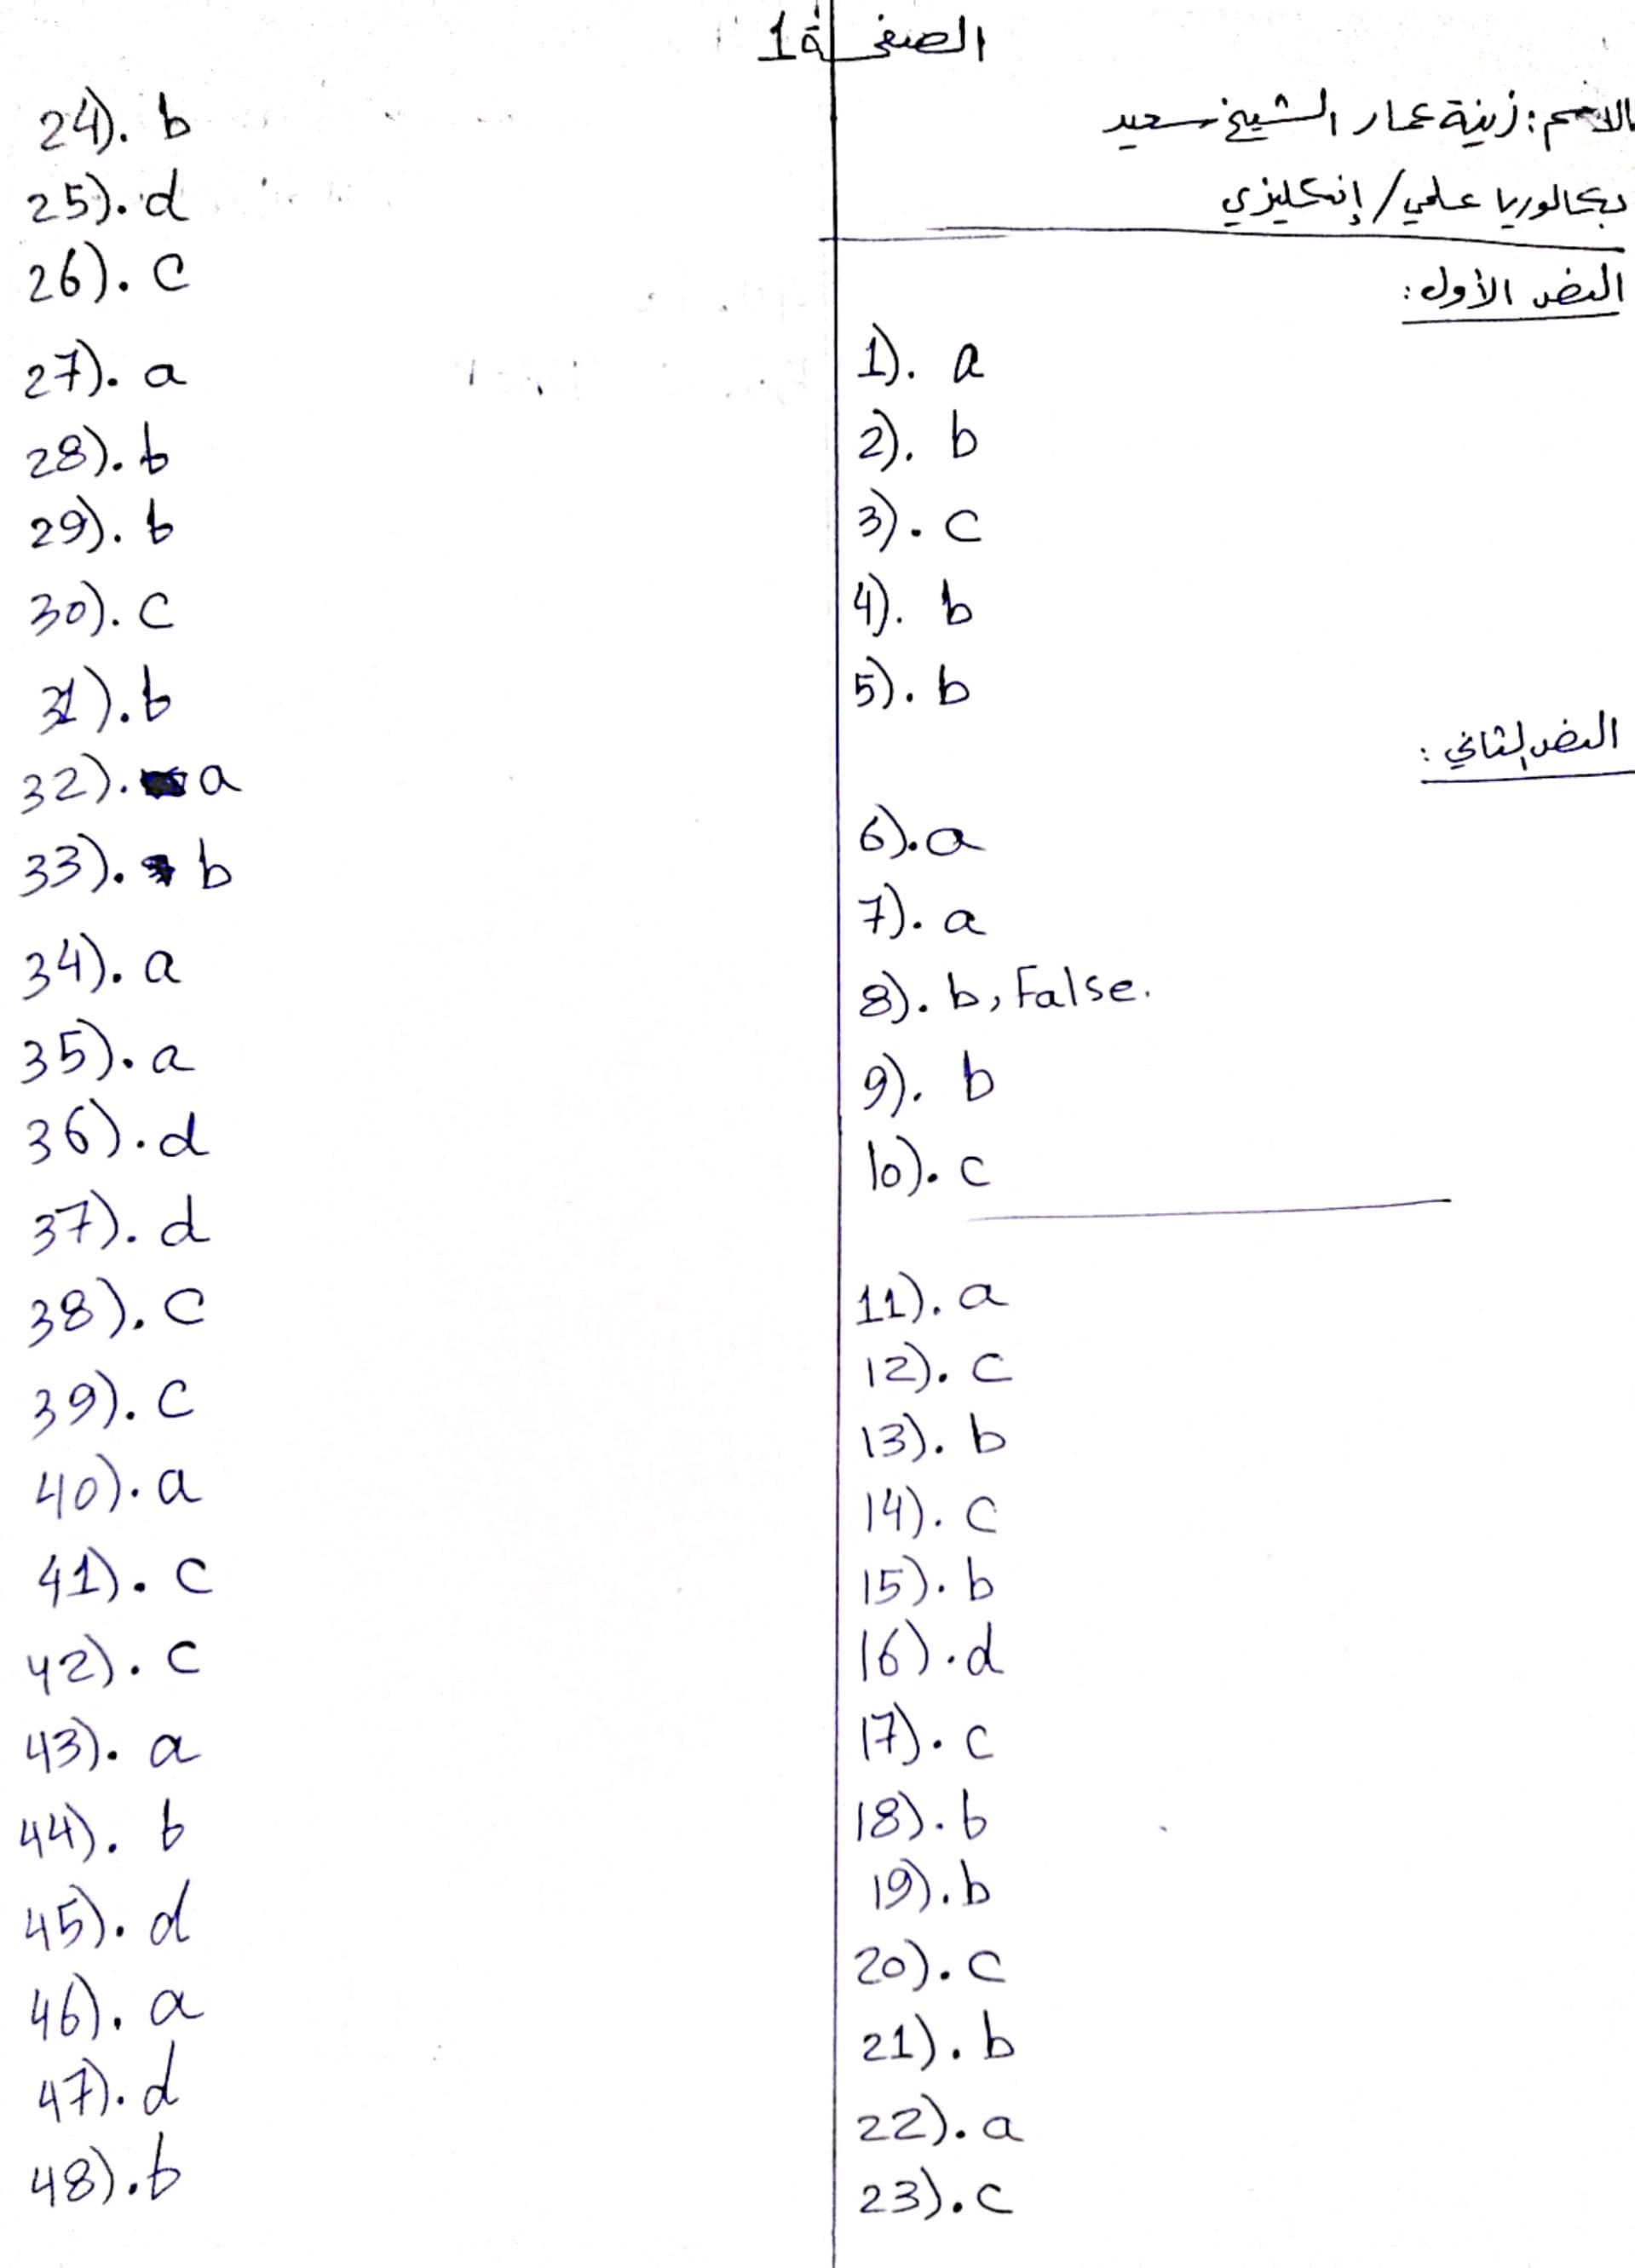 الصفحة 1
الاسم: زينة عمار الشيخ سعيد
بكالوريا علمي / إنكليزي
النص الأول:
1). a
2). b
3). c
4). b
5). b
النص الثاني:
6). a
7). a
8). b, False.
9). b
10). c
11). a
12). c
13). b
14). c
15). b
16). d
17). c
18). b
19). b
20). c
21). b
22). a
23). c
24). b
25). d
26). c
27). a
28). b
29). b
30). c
31). b
32). a
33). b
34). a
35). a
36). d
37). d
38). c
39). c
40). a
41). c
42). c
43). a
44). b
45). d
46). a
47). d
48). b